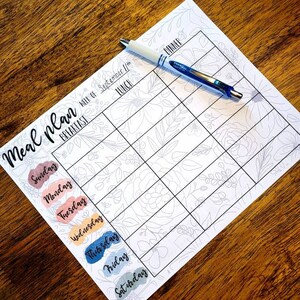 Meal plan
WEEK OF September 11th
BREAKFAST
LUNCH
DINNER
Sunday
Monday
Tuesday
Wednesday
Thursday
Friday
Saturday